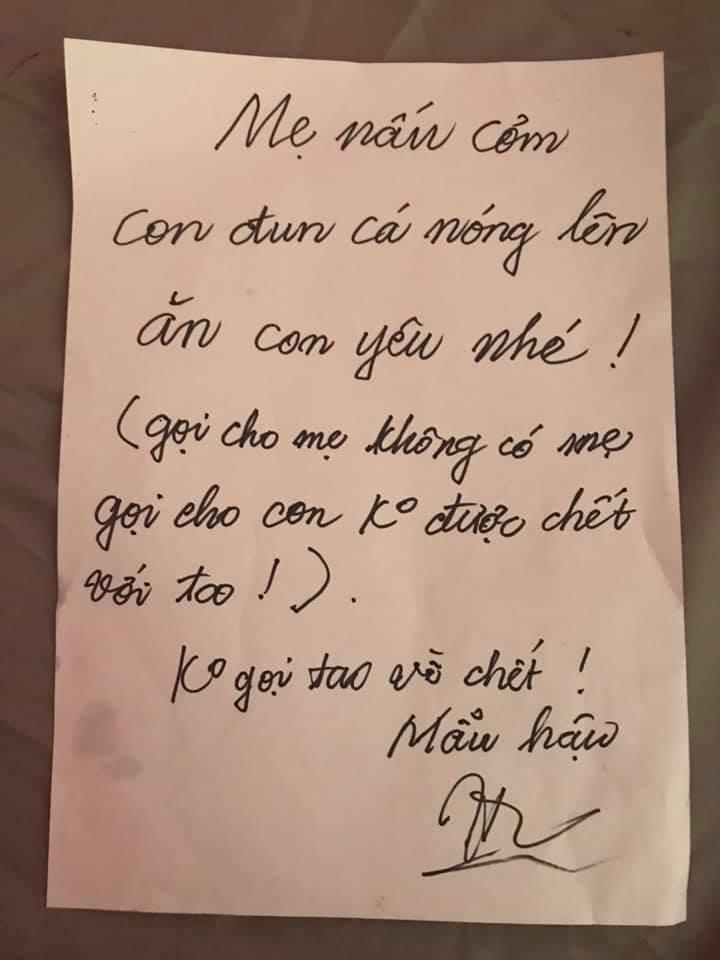 Mẹ nấu cơm
con đun cá nóng lên
ăn con yêu nhé !
(gọi cho mẹ không có mẹ
gọi cho con Ko được chết
với tao ! ) .
Ko gọi tao về chết !
Mẫu hậu